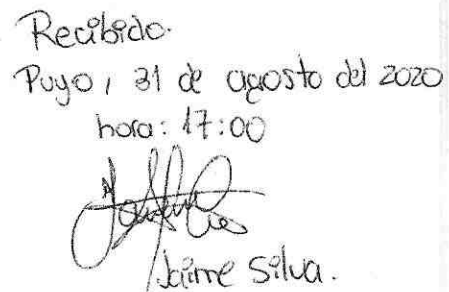 Recibido.
Puyo, 31 de agosto del 2020
hora: 17:00
Jaime Silva.